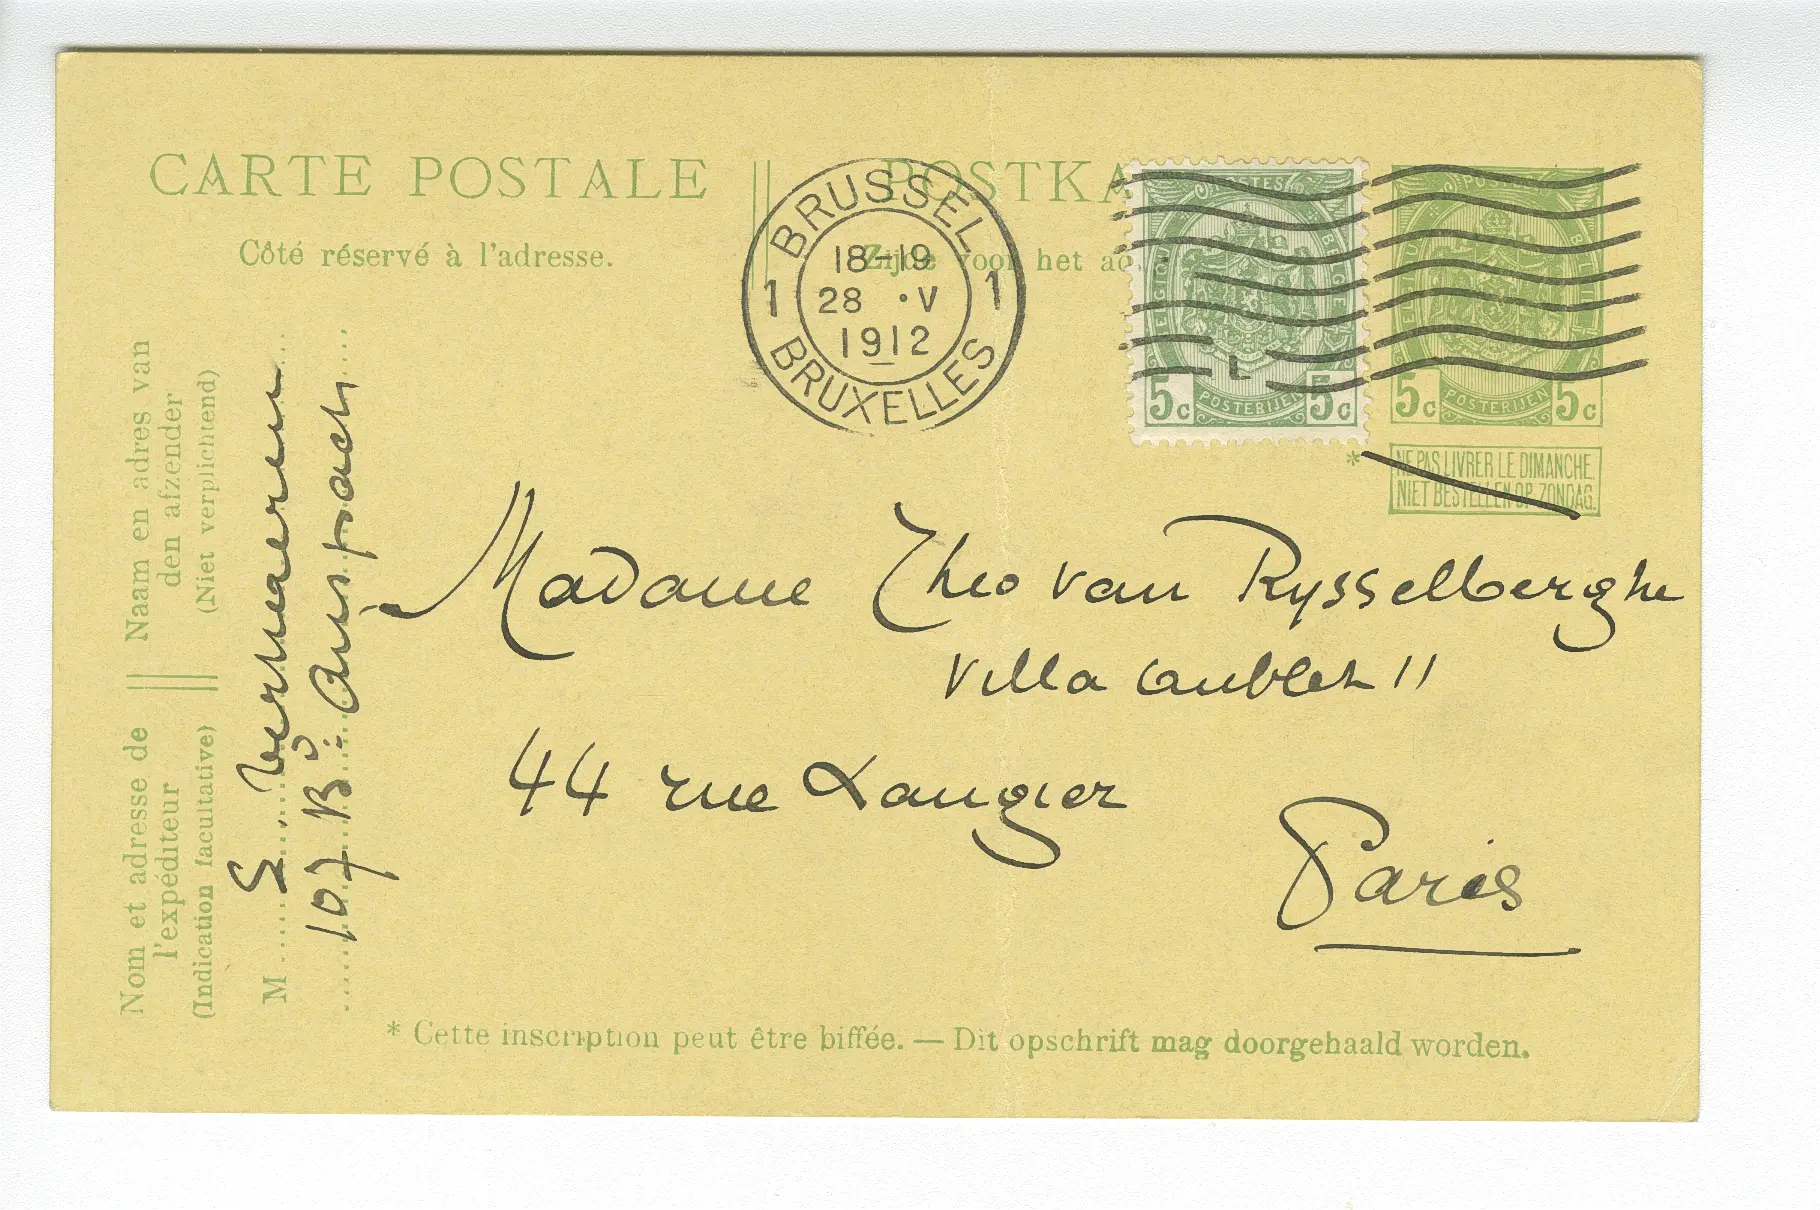 CARTE POSTALE
Côté réservé à l'adresse.
POSTKA
Zijde voor het ad
BRUSSEL
1 1
18-19
28 ·V
1912
BRUXELLES
POSTES
BELGIQUE
BELGIE
5c 5c
POSTERIJEN
L
POSTES
5c 5c
POSTERIJEN
* NE PAS LIVRER LE DIMANCHE.
NIET BESTELLEN OP ZONDAG.
Madame Theo van Rysselberghe
Villa Aublet 11
44 rue Laugier
Paris
Nom et adresse de
l'expéditeur
(Indication facultative)
Naam en adres van
den afzender
(Niet verplichtend)
M E. Verhaeren
107 Bd. Anspach
* Cette inscription peut être biffée. — Dit opschrift mag doorgehaald worden.